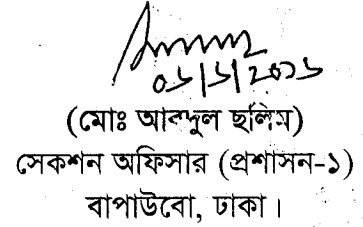 ০৬/৬/২০১৬
(মোঃ আব্দুল ছলিম)
সেকশন অফিসার (প্রশাসন-১)
বাপাউবো, ঢাকা।